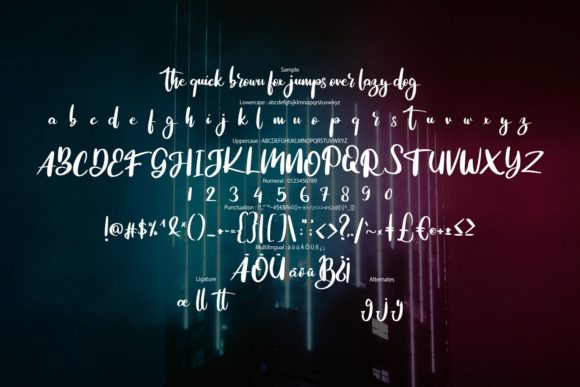 Sample
the quick brown fox jumps over lazy dog
Lowercase : abcdefghijklmnopqrstuvwxyz
a b c d e f g h i j k l m n o p q r s t u v w x y z
Uppercase : ABCDEFGHIJKLMNOPQRSTUVWXYZ
ABCDEFGHIJKLMNOPQRSTUVWXYZ
Numeral : 0123456789
1 2 3 4 5 6 7 8 9 0
Punctuation :
!@#$%^&*()_-+={}[]|\:;<>?./~×±£€
Multilingual : ä ö ü Ä Ö Ü ß ¿ ¡
ÄÖÜ äöü
Ligature
Alternates
æ ll tt
g j y